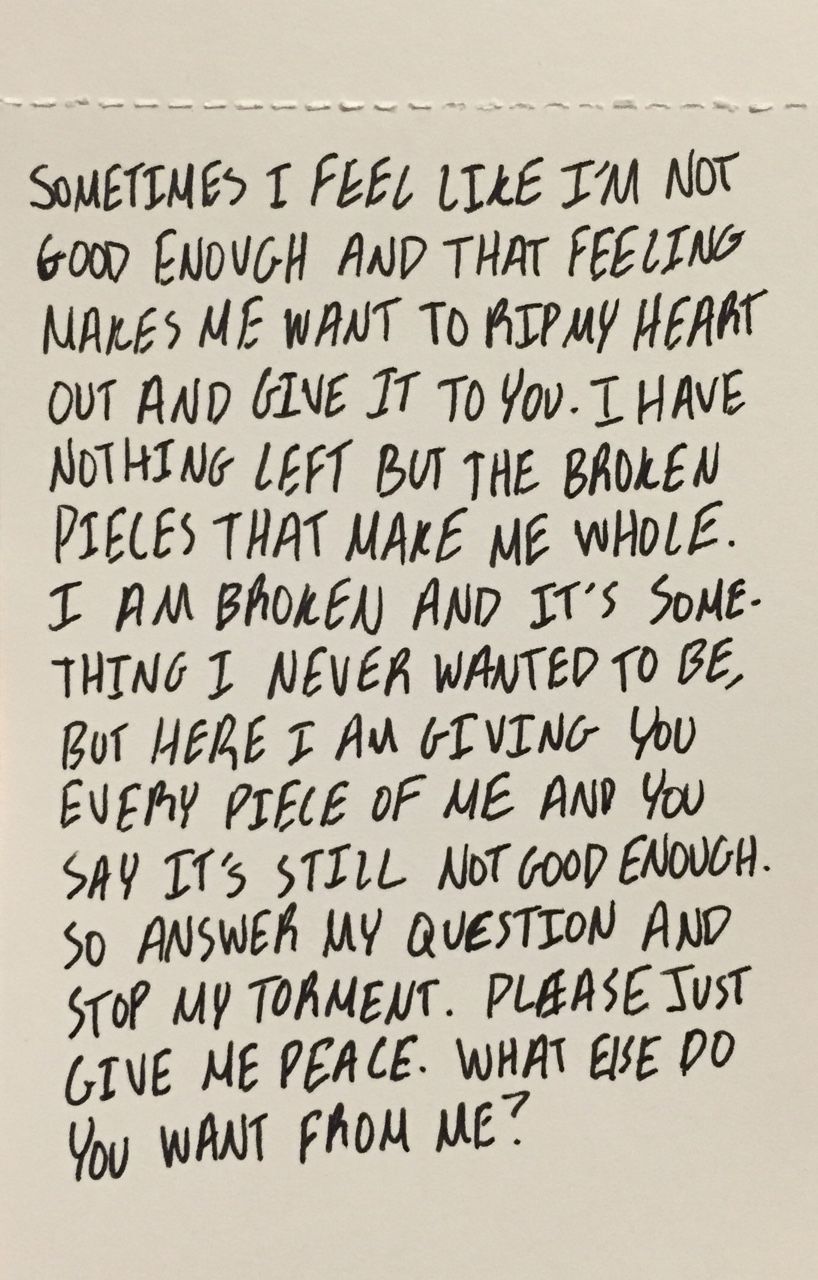 SOMETIMES I FEEL LIKE I'M NOT
GOOD ENOUGH AND THAT FEELING
MAKES ME WANT TO RIP MY HEART
OUT AND GIVE IT TO YOU. I HAVE
NOTHING LEFT BUT THE BROKEN
PIECES THAT MAKE ME WHOLE.
I AM BROKEN AND IT'S SOME-
THING I NEVER WANTED TO BE,
BUT HERE I AM GIVING YOU
EVERY PIECE OF ME AND YOU
SAY IT'S STILL NOT GOOD ENOUGH.
SO ANSWER MY QUESTION AND
STOP MY TORMENT. PLEASE JUST
GIVE ME PEACE. WHAT ELSE DO
YOU WANT FROM ME?